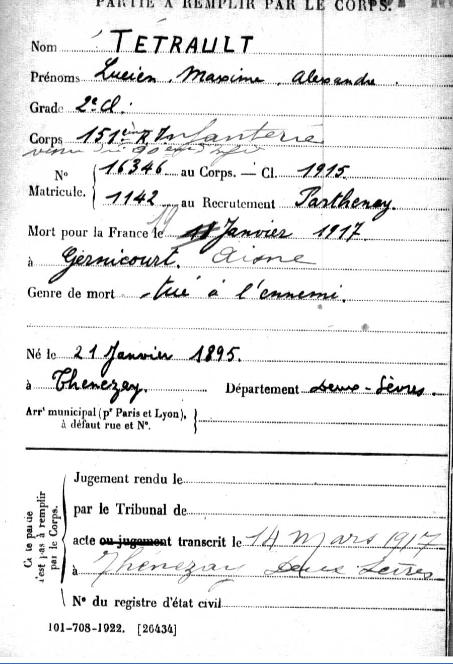 PARTIE À REMPLIR PAR LE CORPS.
Nom TÉTRAULT
Prénoms Lucien Maxime Alexandre
Grade 2e Cl.
Corps 151ème R. Infanterie
No 16346 au Corps. — Cl. 1915
Matricule. 1142 au Recrutement Parthenay.
Mort pour la France le 10 Janvier 1917
à Gernicourt. Aisne
Genre de mort tué à l'ennemi.
Né le 21 Janvier 1895.
à Thenezay. Département Deux-Sèvres
Arrt municipal (pr Paris et Lyon),
à défaut rue et No.
Cette partie
n'est pas à remplir
par le Corps.
Jugement rendu le
par le Tribunal de
acte ou jugement transcrit le 14 Mars 1917
à Thénezay Deux Sèvres
No du registre d'état civil
101-708-1922. [26434]